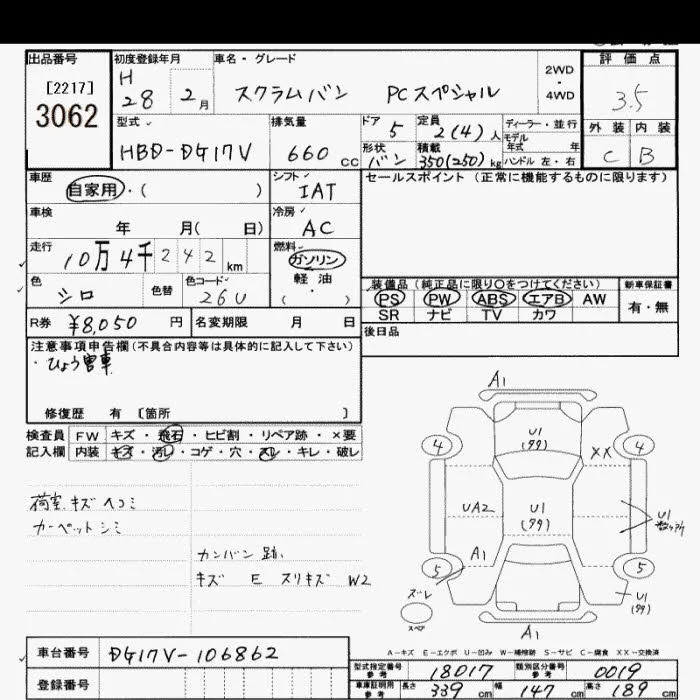 出品番号 初度登録年月 車名・グレード 2WD・4WD 評価点
[2217]
3062
H 28 2月 スクラムバン PCスペシャル 3.5
型式 排気量 ドア 5 定員 2(4)人 ディーラー・並行 外装 内装
HBD-DG17V 660cc 形状 バン 積載 350(250)kg モデル年式 年 ハンドル 左・右 C B
車歴 シフト セールスポイント(正常に機能するものに限ります)
自家用・( ) IAT
車検 年 月( 日) 冷房 AC
走行 10万4千242km 燃料 ガソリン 軽油 ( ・ )
色 シロ 色替 色コード 26U
装備品(純正品に限り〇をつけてください) 新車保証書
PS PW ABS エアB AW 有・無
SR ナビ TV カワ
R券 ¥8,050円 名変期限 月 日 後日品
注意事項申告欄(不具合内容等は具体的に記入して下さい)
・ひょう害車
修復歴 有 [箇所 ]
検査員記入欄 FW キズ・飛石・ヒビ割・リペア跡・×要
内装 キズ・汚レ・コゲ・穴・スレ・キレ・破レ
荷室.キズヘコミ
カーペットシミ
カンバン跡
キズ E スリキズ W2
A1
4 U1 4
XX
UA2 U1 U1
A1
5 5
ズレ U1
スペア
A1
A-キズ E-エクボ U-凹み W-補修跡 S-サビ C-腐食 XX-交換済
車台番号 DG17V-106862
登録番号
型式指定番号 参考 18017 類別区分番号 参考 0019
車庫証明用 参考 長さ 339cm 幅 147cm 高さ 189cm